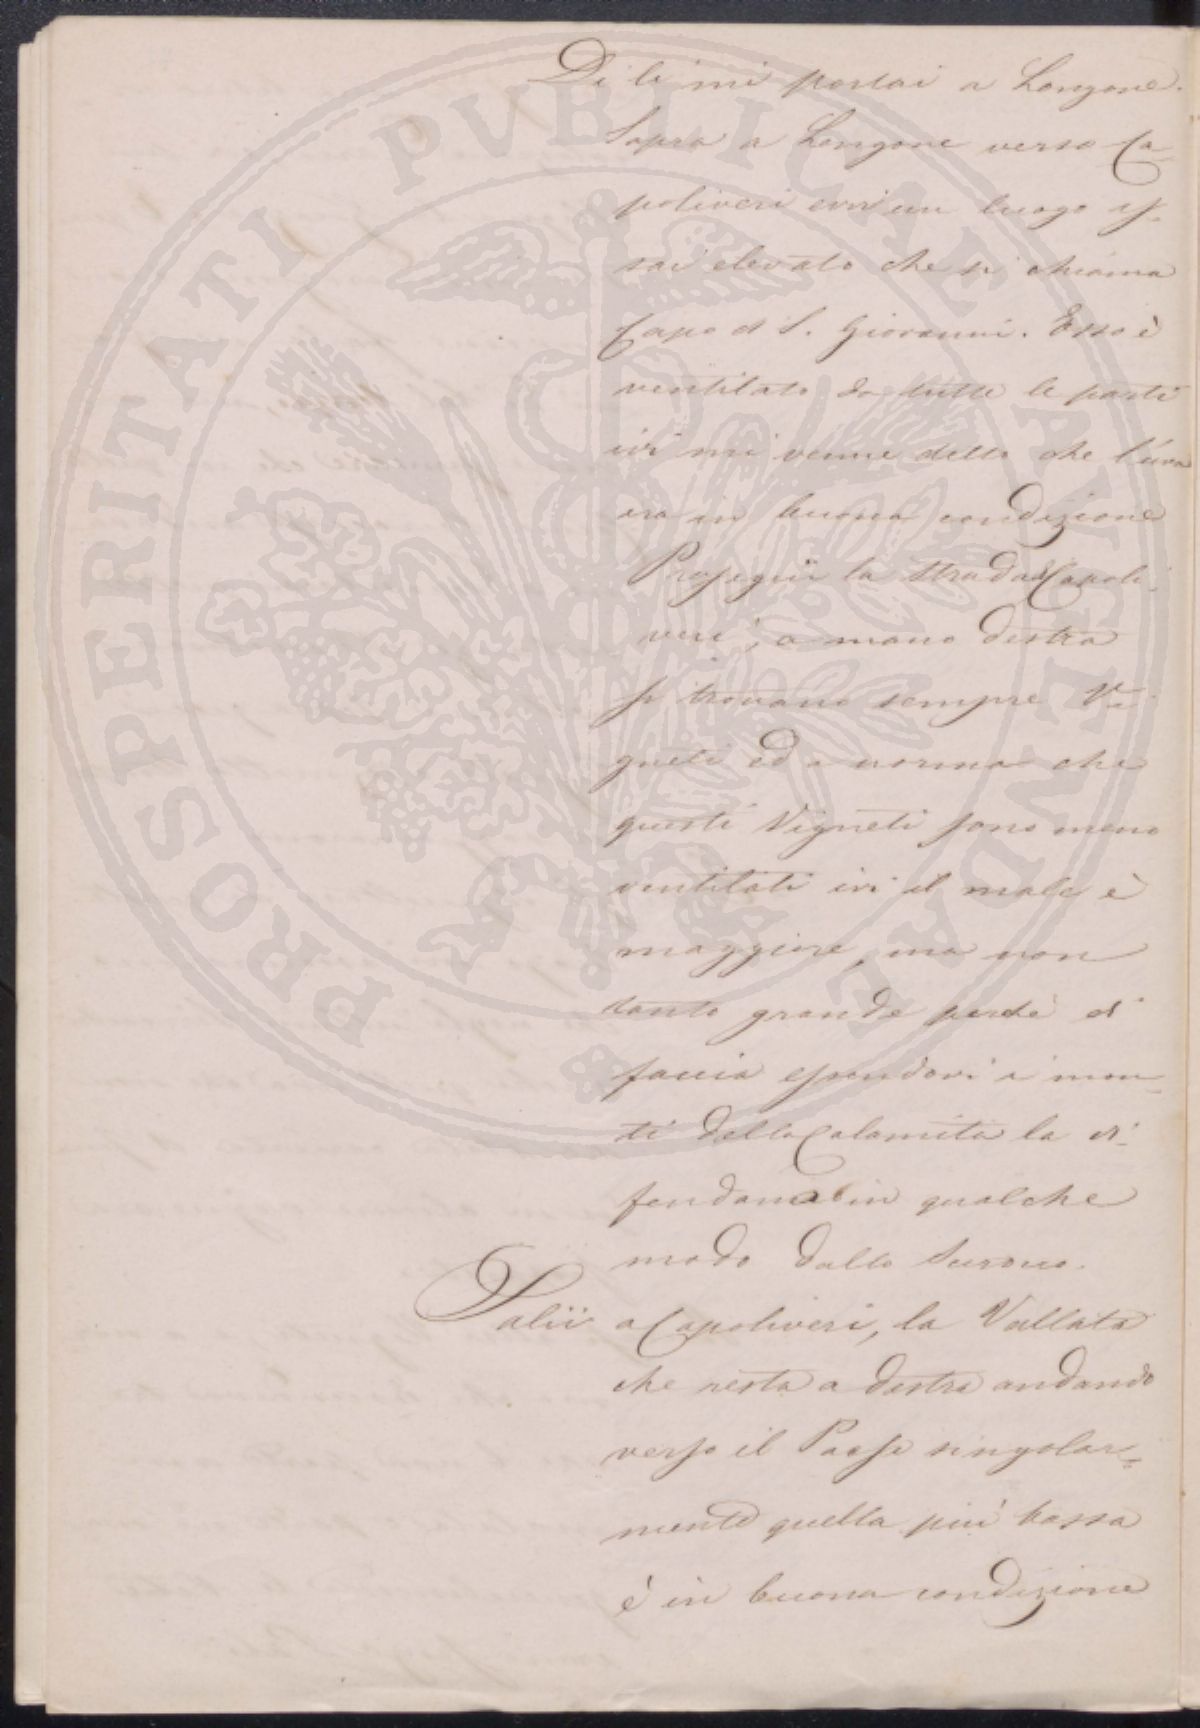 Di li mi portai a Longone.
Sopra a Longone verso Ca-
poliveri evvi un luogo as-
sai elevato che si chiama
Capo di S. Giovanni. Esso è
ventilato da tutte le parti
ivi mi venne detto che l'uva
era in buona condizione
Proseguii la strada di Capoli-
veri, a mano destra
si trovano sempre Vi-
gneti ed a norma che
questi Vigneti sono meno
ventilati ivi il male è
maggiore, ma non
tanto grande perchè di
faccia essendovi i mon-
ti della Calamita la di-
fendano in qualche
modo dallo Scirocco.
Salii a Capoliveri, la Vallata
che resta a destra andando
verso il Paese singolar-
mente quella più bassa
è in buona condizione
PROSPERITATI PVBLICAE AVGENDAE